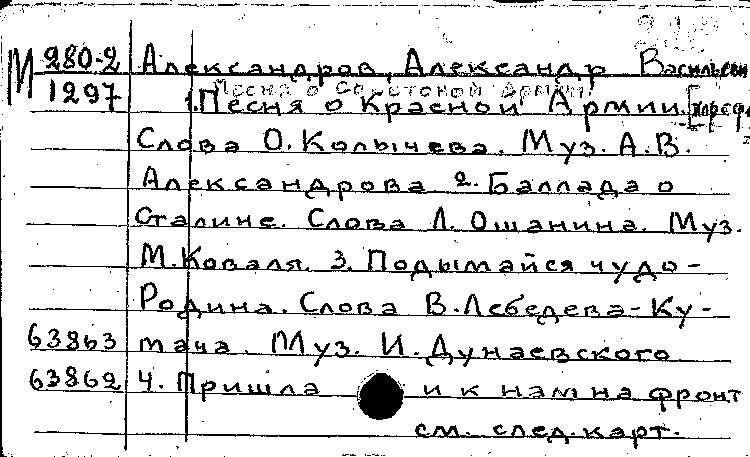 М 280-2 Александров, Александр Васильеви
1297 Песня о Советской Армии
1. Песня о Красной Армии.
Слова О. Колычева. Муз. А.В.
Александрова 2. Баллада о
Сталине. Слова Л. Ошанина. Муз.
М. Коваля. 3. Подымайся чудо-
Родина. Слова В. Лебедева-Ку-
63863 мача. Муз. И. Дунаевского
63862 4. Пришла и к нам на фронт
см. след. карт.